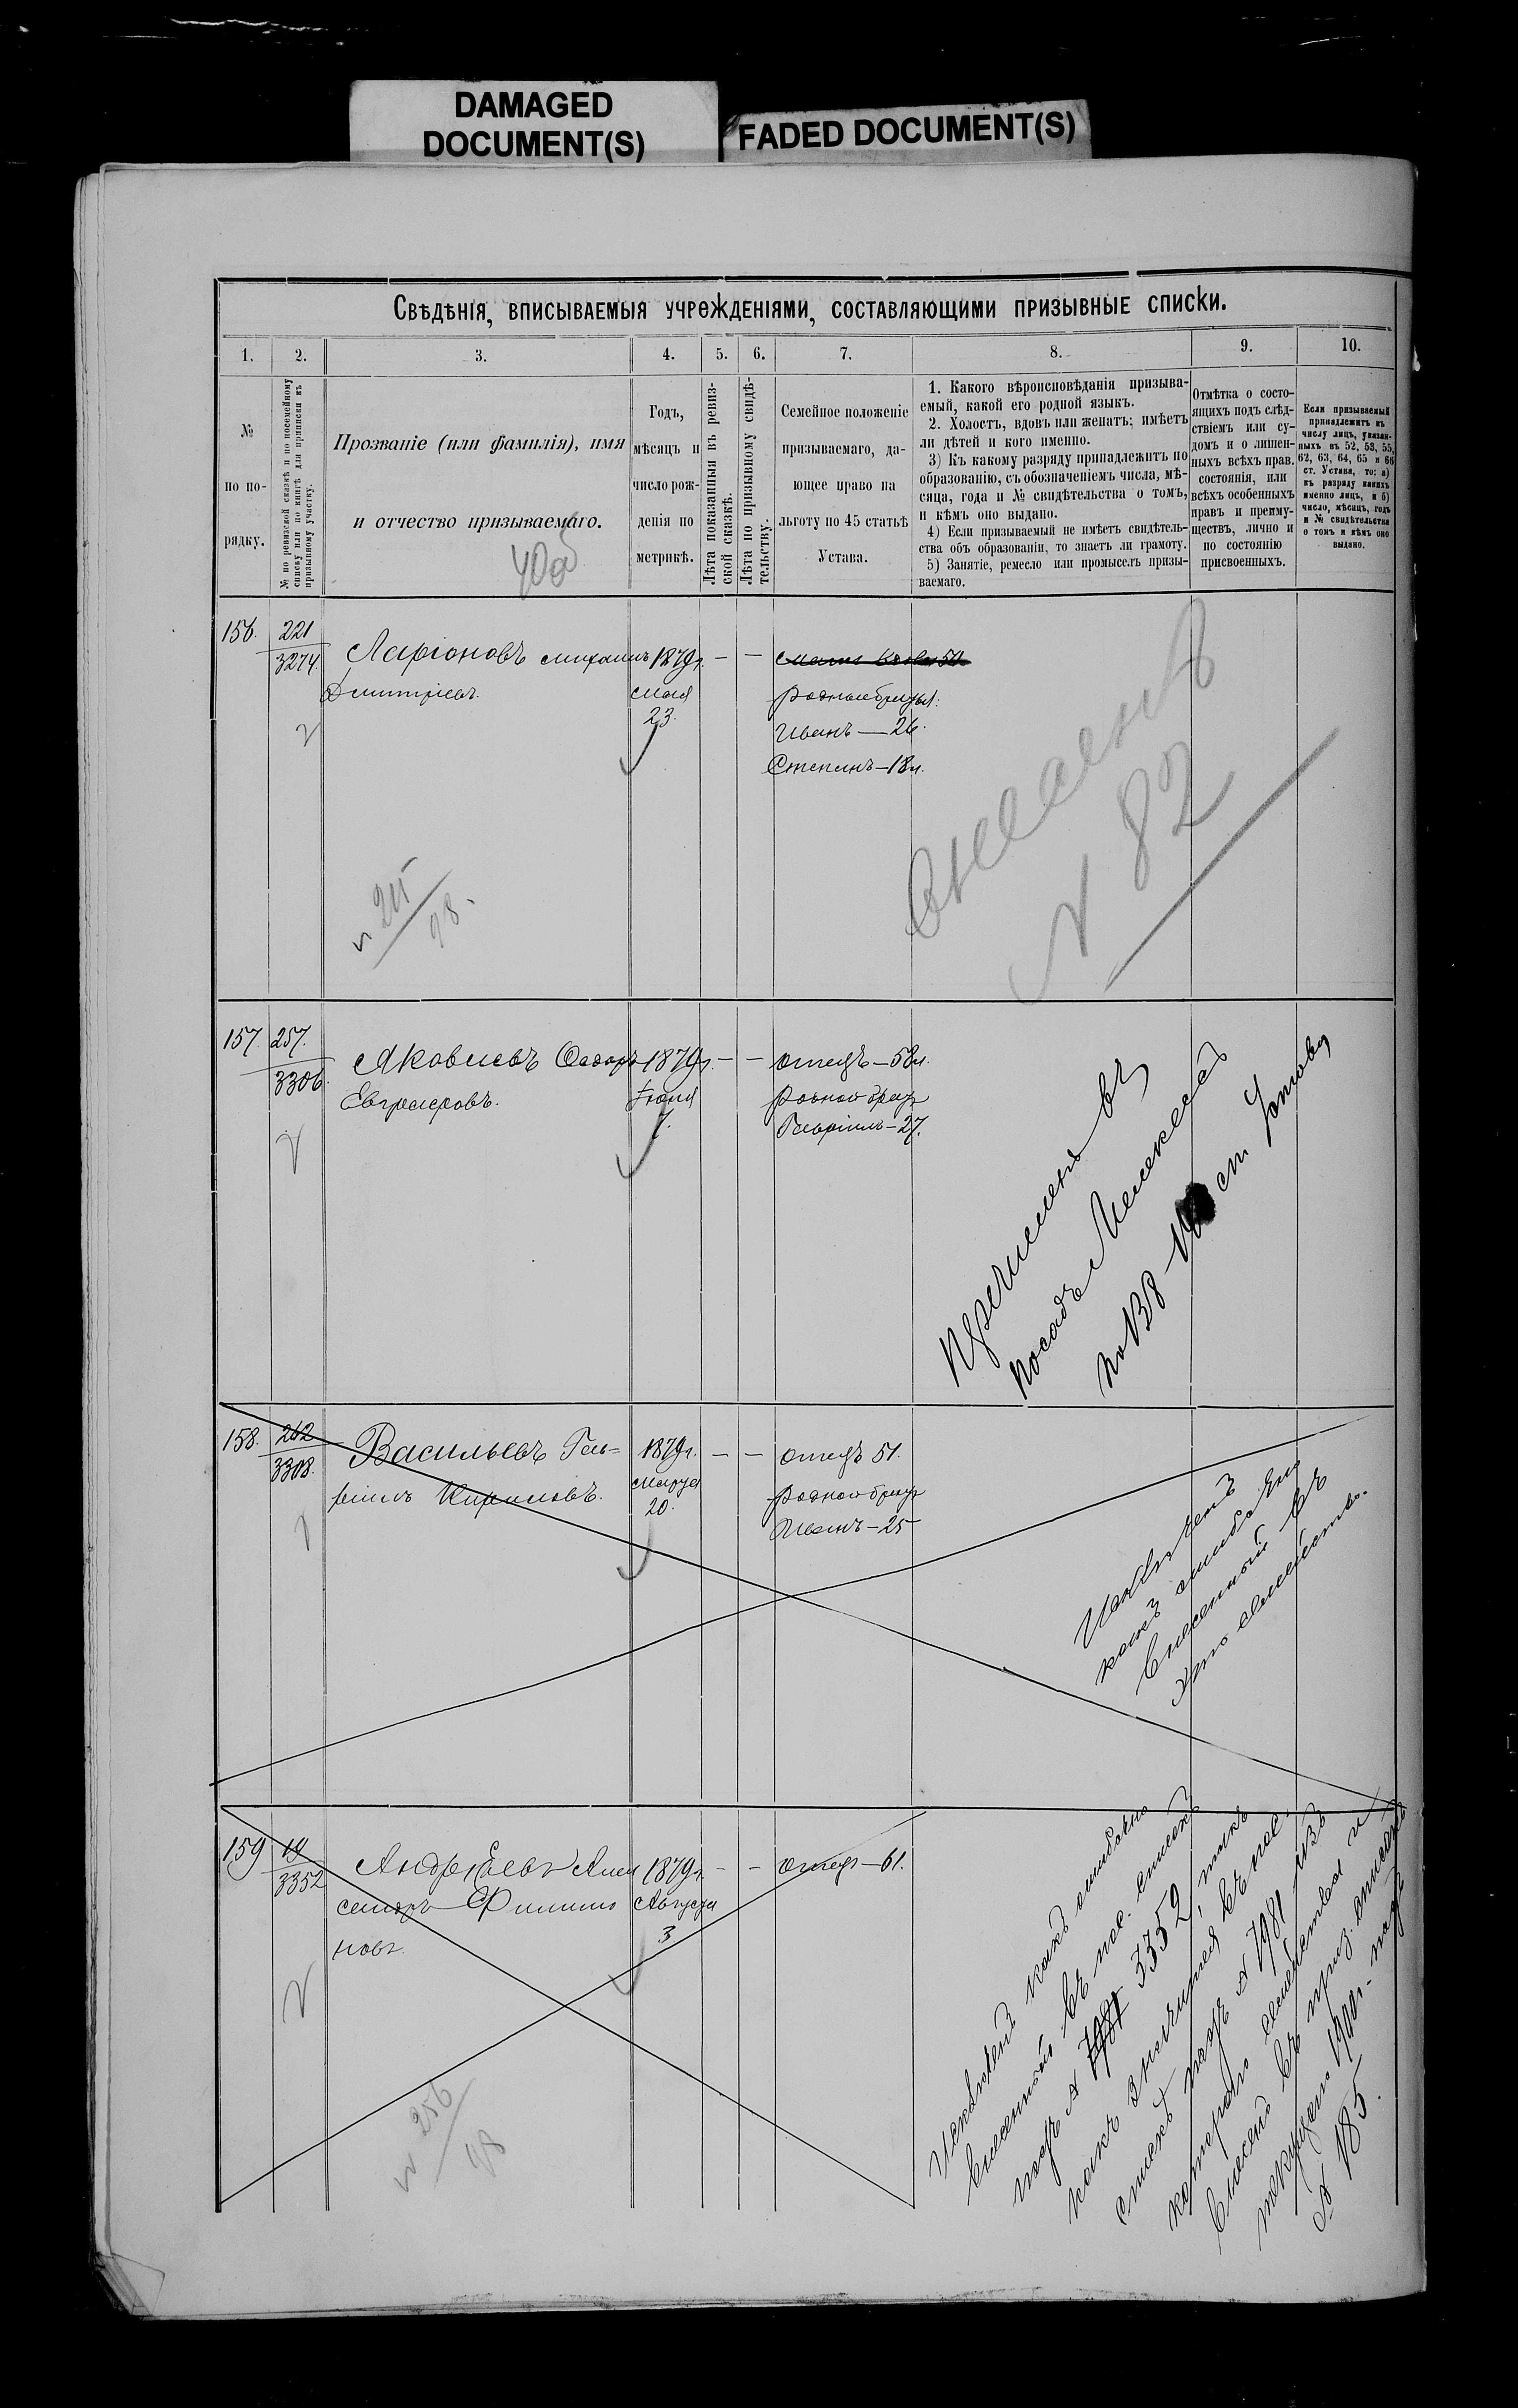 DAMAGED
DOCUMENT(S)
FADED DOCUMENT(S)
Свѣдѣнія, вписываемыя учрежденіями, составляющими призывные списки.
1.
2.
3.
4.
5.
6.
7.
8.
9.
10.
№
по по-
рядку.
№ по ревизской сказкѣ и по посемейному
списку или по книгѣ для приписки къ
призывному участку.
Прозваніе (или фамилія), имя
и отчество призываемаго.
Годъ,
мѣсяцъ и
число рож-
денія по
метрикѣ.
Лѣта показанныя въ ревиз-
ской сказкѣ.
Лѣта по призывному свидѣ-
тельству.
Семейное положеніе
призываемаго, да-
ющее право на
льготу по 45 статьѣ
Устава.
1. Какого вѣроисповѣданія призыва-
емый, какой его родной языкъ.
2. Холостъ, вдовъ или женатъ; имѣетъ
ли дѣтей и кого именно.
3) Къ какому разряду принадлежитъ по
образованію, съ обозначеніемъ числа, мѣ-
сяца, года и № свидѣтельства о томъ,
и кѣмъ оно выдано.
4) Если призываемый не имѣетъ свидѣтель-
ства объ образованіи, то знаетъ ли грамоту.
5) Занятіе, ремесло или промыселъ призы-
ваемаго.
Отмѣтка о состо-
ящихъ подъ слѣд-
ствіемъ или су-
домъ и о лишен-
ныхъ всѣхъ прав.
состоянія, или
всѣхъ особенныхъ
правъ и преиму-
ществъ, лично и
по состоянію
присвоенныхъ.
Если призываемый
принадлежитъ къ
числу лицъ, указан-
ныхъ въ 52, 53, 55,
62, 63, 64, 65 и 66
ст. Устава, то: а)
къ разряду какихъ
именно лицъ, и б)
число, мѣсяцъ, годъ
и № свидѣтельства
о томъ и кѣмъ оно
выдано.
156.
221
3274.
Ларіоновъ Михаилъ
Дмитріевъ.
1879г.
Мая
23.
— —
родные братья:
Иванъ — 26.
Степанъ — 18л.
Внесенъ
№ 82
157.
257.
3306.
Яковлевъ Ѳедоръ
Евграфовъ.
1879г.
Іюня
7.
— —
отецъ — 58л.
родной братъ
Гавріилъ — 27.
перечисленъ въ
посадъ Мелекессъ
158.
262
3308.
Васильевъ Гав-
ріилъ Кириловъ.
1879г.
Марта
20.
— —
отецъ 51.
родной братъ
Иванъ — 25
Исключенъ
какъ ошибочно
внесенный въ
это семейство.
159
19
3352
Андреевъ Алек
сандръ Филиппо
новъ.
1879г.
Августа
3
— —
отецъ — 61.
Исключенъ какъ ошибочно
внесенный въ пос. списокъ
подъ № 7981 3352, такъ
какъ значится въ пос.
списк. подъ № 7981 изъ
котораго семейства и
внесенъ въ приз. списокъ
текущаго 1900г. подъ
№ 185.